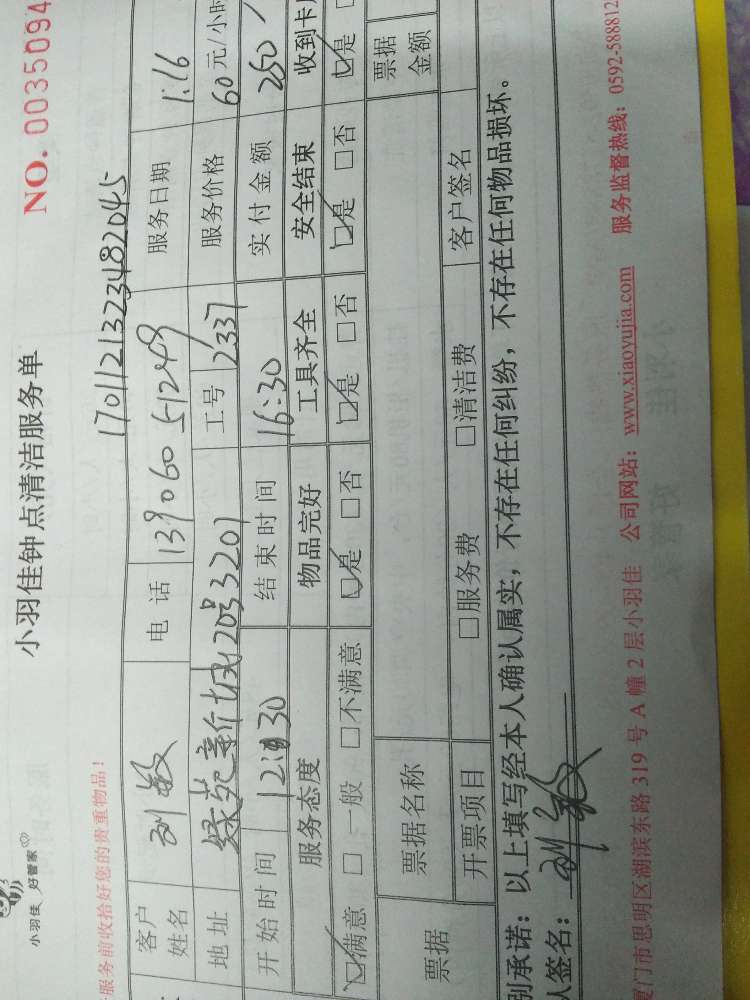 小羽佳 好管家
小羽佳钟点清洁服务单
NO. 0035094
服务前收拾好您的贵重物品!
1701121323482045
客户姓名 刘敏 电话 13906051249 服务日期 1.16
地址 绿苑新城20号3201 工号 2337 服务价格 60元/小时
开始时间 12:30 结束时间 16:30 实付金额 250
服务态度 物品完好 工具齐全 安全结束 收到卡
☑满意 □一般 □不满意 ☑是 □否 ☑是 □否 ☑是 □否 ☑是
票据 票据名称 票据金额
开票项目 □服务费 □清洁费 客户签名
别承诺:以上填写经本人确认属实,不存在任何纠纷,不存在任何物品损坏。
人签名: 刘敏
厦门市思明区湖滨东路319号A幢2层小羽佳 公司网站:www.xiaoyujia.com 服务监督热线:0592-5888812